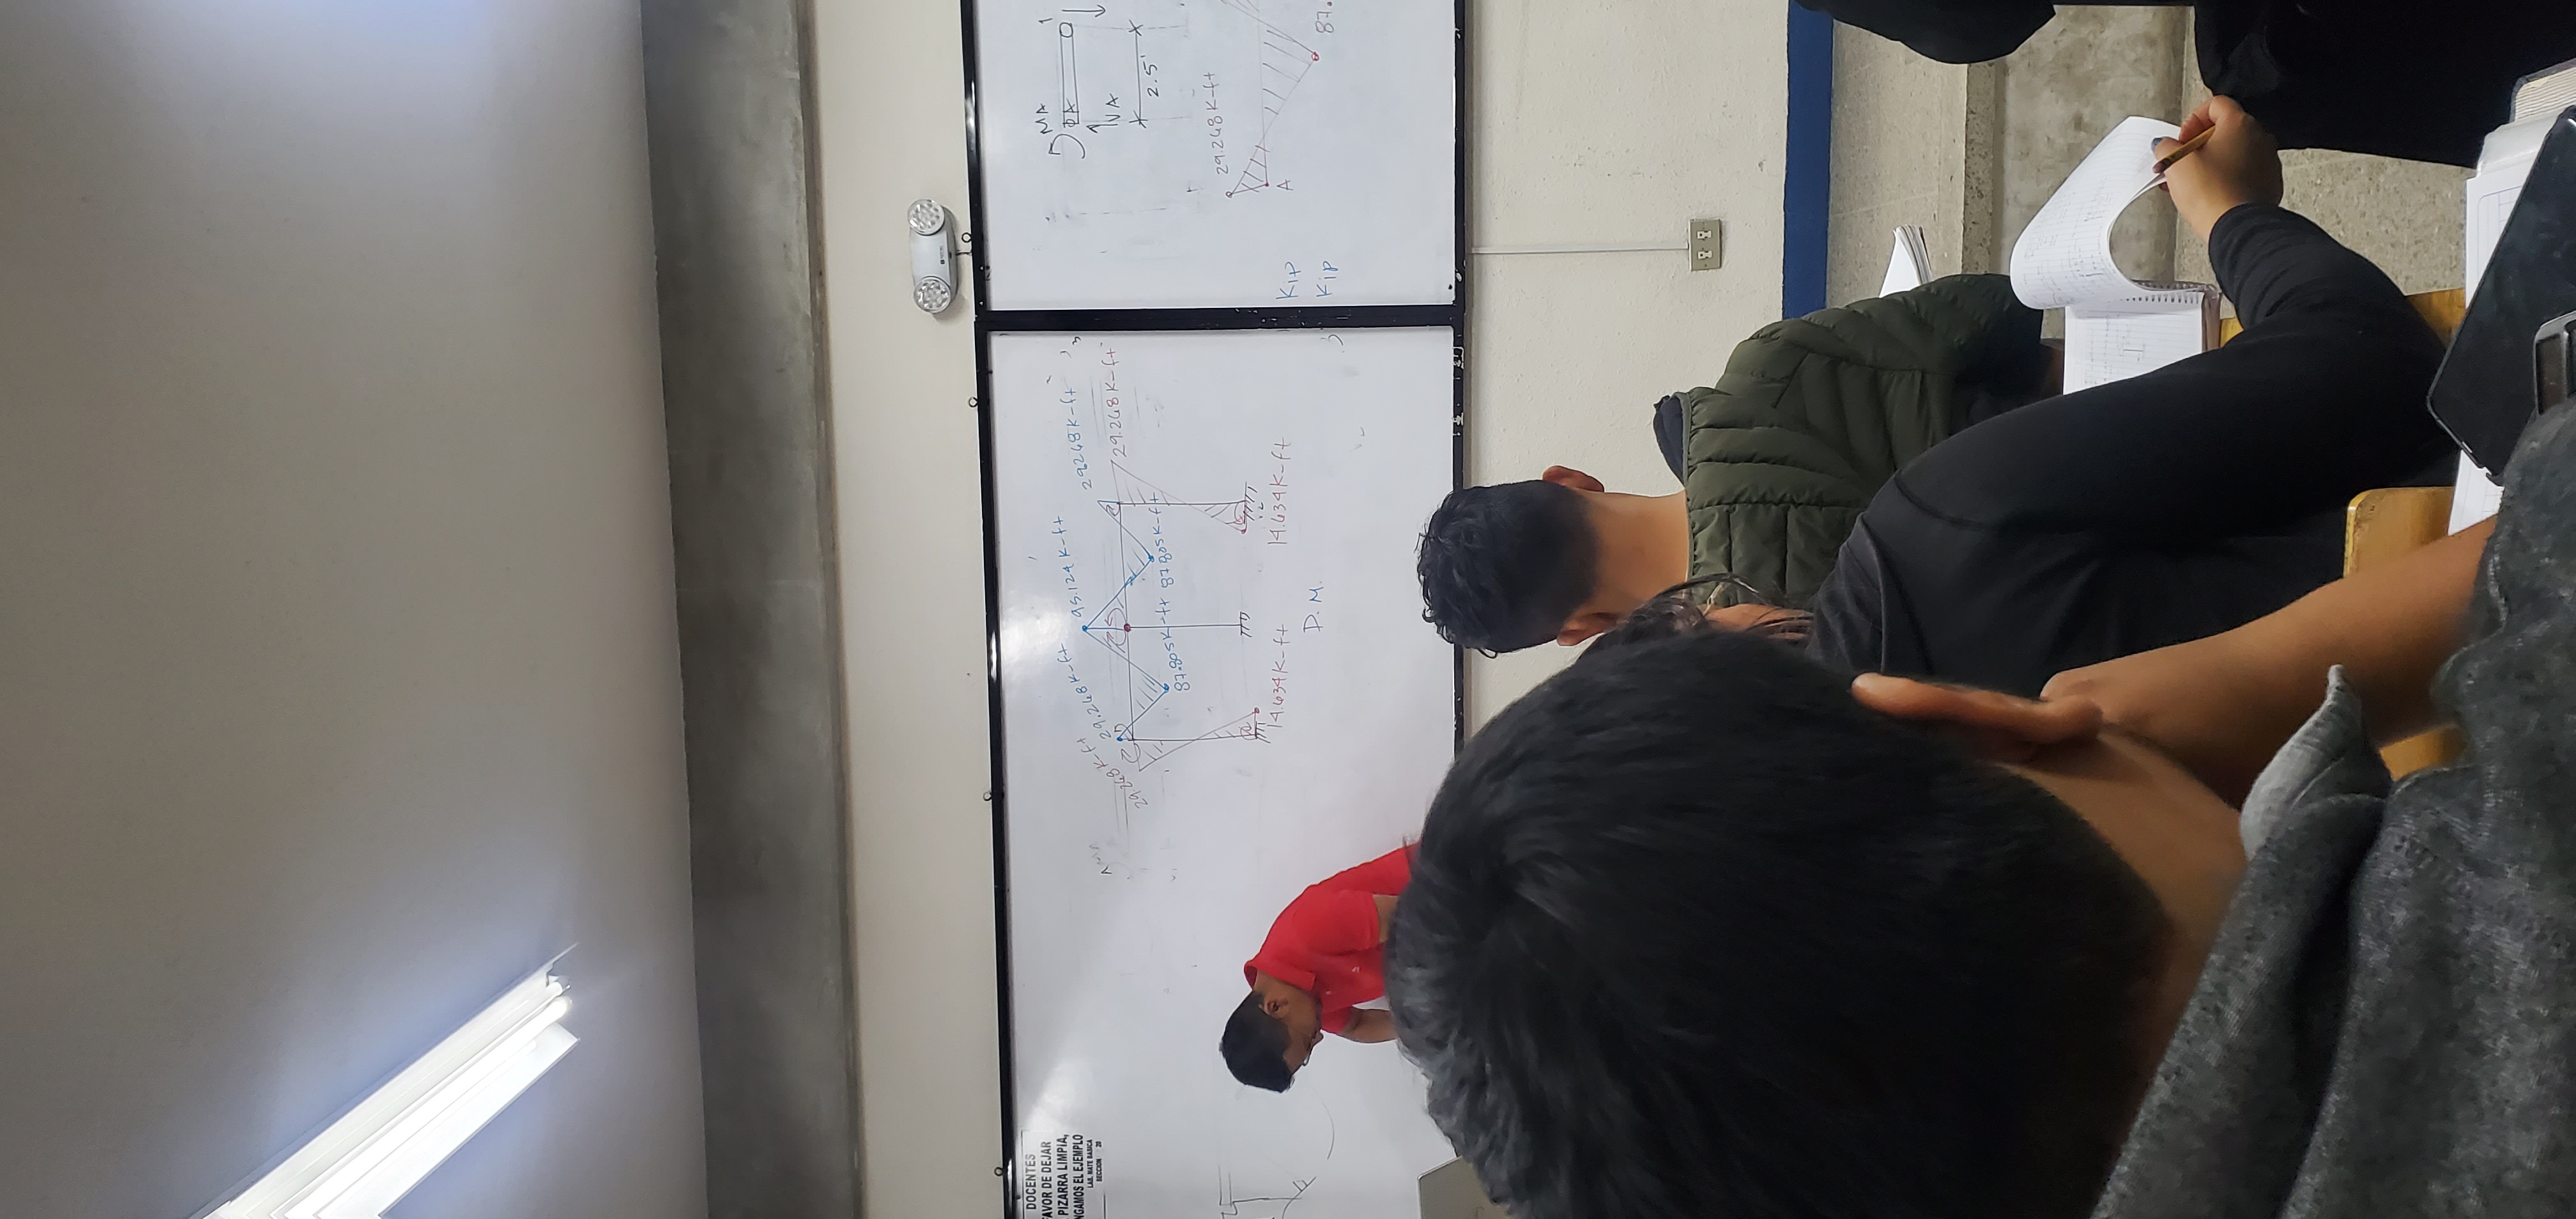 DOCENTES
FAVOR DE DEJAR
PIZARRA LIMPIA,
NGAMOS EL EJEMPLO
LAB. MATE BASICA
SECCION 20
29.268K-ft
29.268K-ft
95.124K-ft
29.268K-ft
29.268K-ft
87.805K-ft
87.805K-ft
14.634K-ft
14.634K-ft
D.M.
MA
1
VA
2.5'
29.268K-ft
A
87.
Kip
Kip